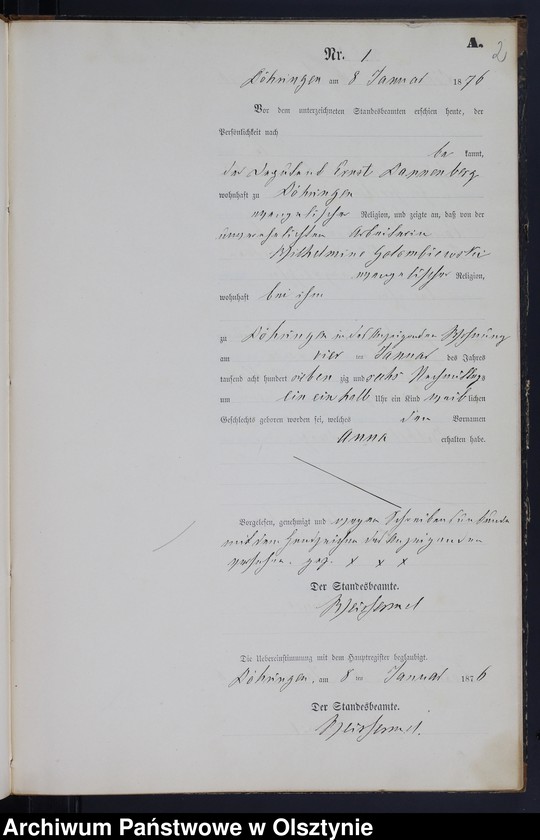 A.
2
Nr. 1
Döhringen am 8 Januar 1876
Vor dem unterzeichneten Standesbeamten erschien heute, der
Persönlichkeit nach
be kannt,
der Ernst Dannenberg
wohnhaft zu Döhringen
evangelischer Religion, und zeigte an, daß von der
unverehelichten Arbeiterin
Wilhelmine Golombiewski
evangelischer Religion,
wohnhaft bei ihm
zu Döhringen in des Anzeigenden Wohnung
am vier ten Januar des Jahres
tausend acht hundert sieben zig und sechs Nachmittags
um ein ein halb Uhr ein Kind weib lichen
Geschlechts geboren worden sei, welches den Vornamen
Anna erhalten habe.
Vorgelesen, genehmigt und wegen Schreibensunkunde
mit dem Handzeichen des Anzeigenden
versehen. gez. x x x
Der Standesbeamte.
Die Uebereinstimmung mit dem Hauptregister beglaubigt.
Döhringen, am 8 ten Januar 1876
Der Standesbeamte.
Archiwum Państwowe w Olsztynie